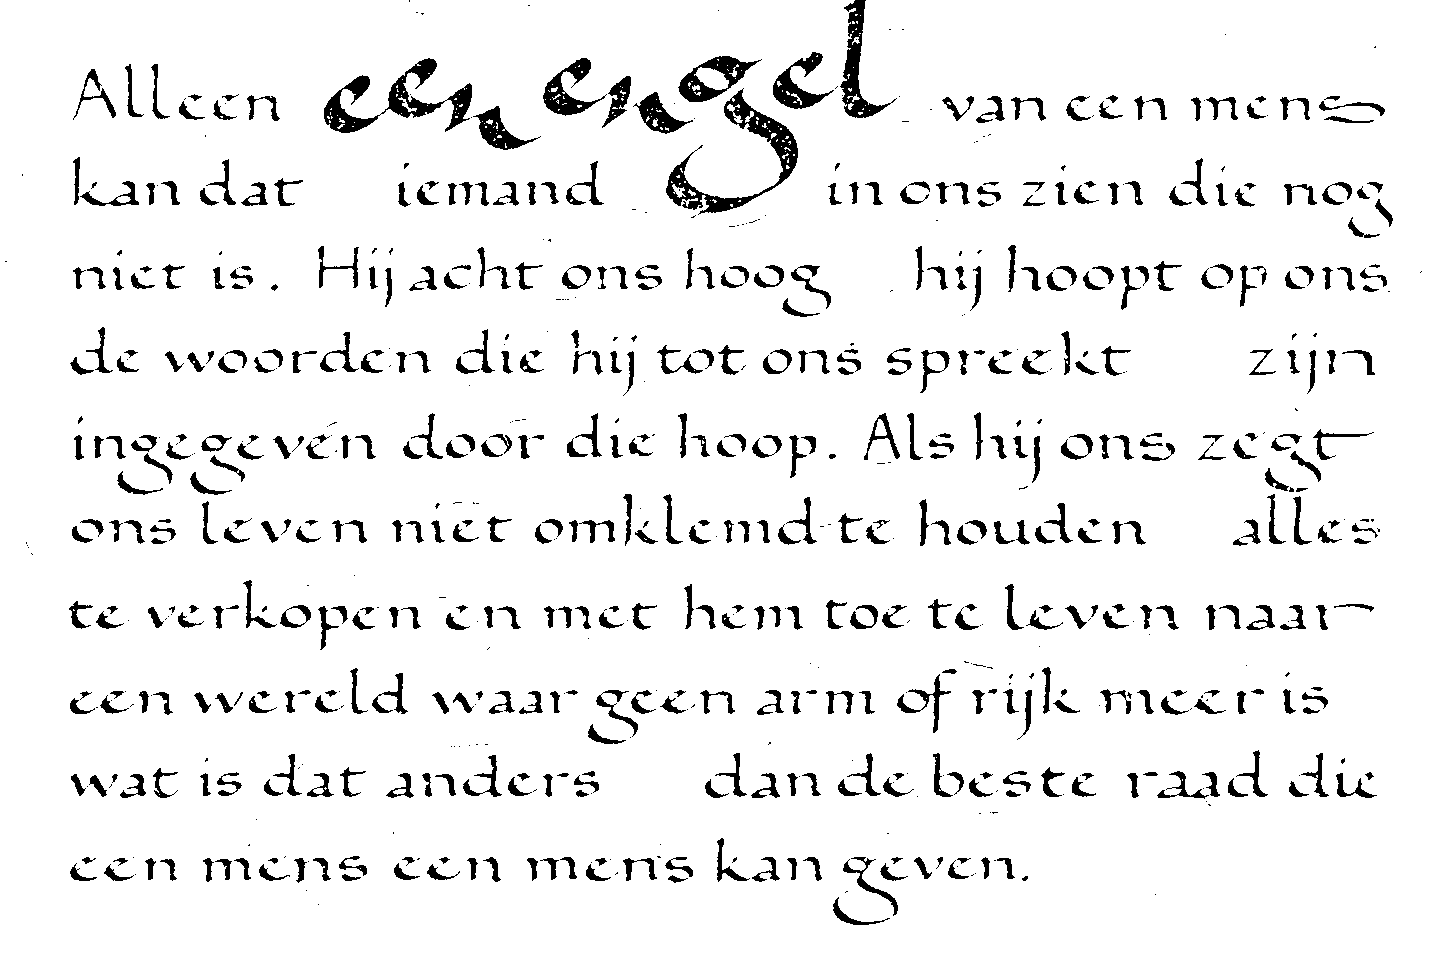 Alleen een engel van een mens
kan dat iemand in ons zien die nog
niet is. Hij acht ons hoog hij hoopt op ons
de woorden die hij tot ons spreekt zijn
ingegeven door die hoop. Als hij ons zegt
ons leven niet omklemd te houden alles
te verkopen en met hem toe te leven naar
een wereld waar geen arm of rijk meer is
wat is dat anders dan de beste raad die
een mens een mens kan geven.